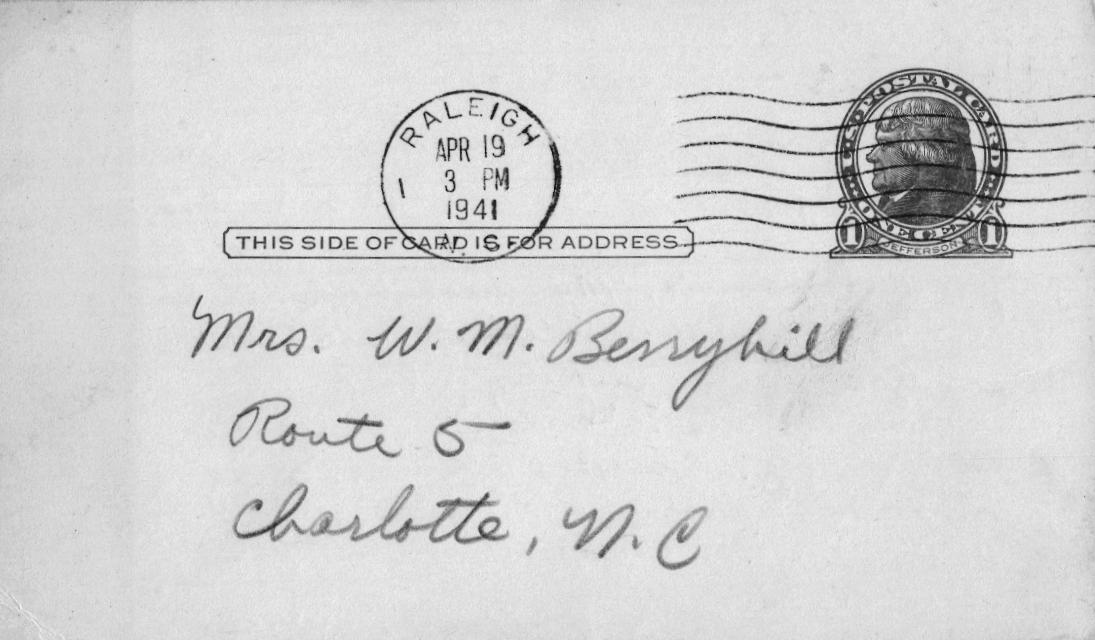 RALEIGH
APR 19
3 PM
1941
1
N. C.
U.S. POSTAL CARD
ONE CENT
1 JEFFERSON 1
THIS SIDE OF CARD IS FOR ADDRESS
Mrs. W. M. Berryhill
Route 5
Charlotte, N. C